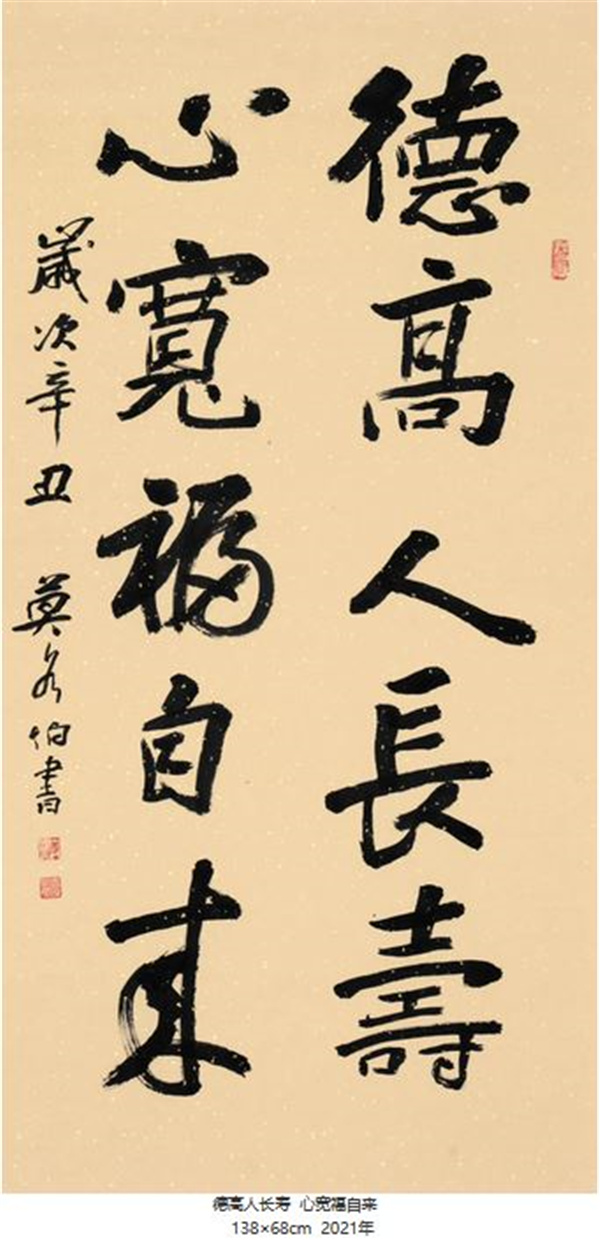 德高人長壽
心寬福自来
歲次辛丑 莫各伯書
德高人长寿 心宽福自来
138×68cm 2021年